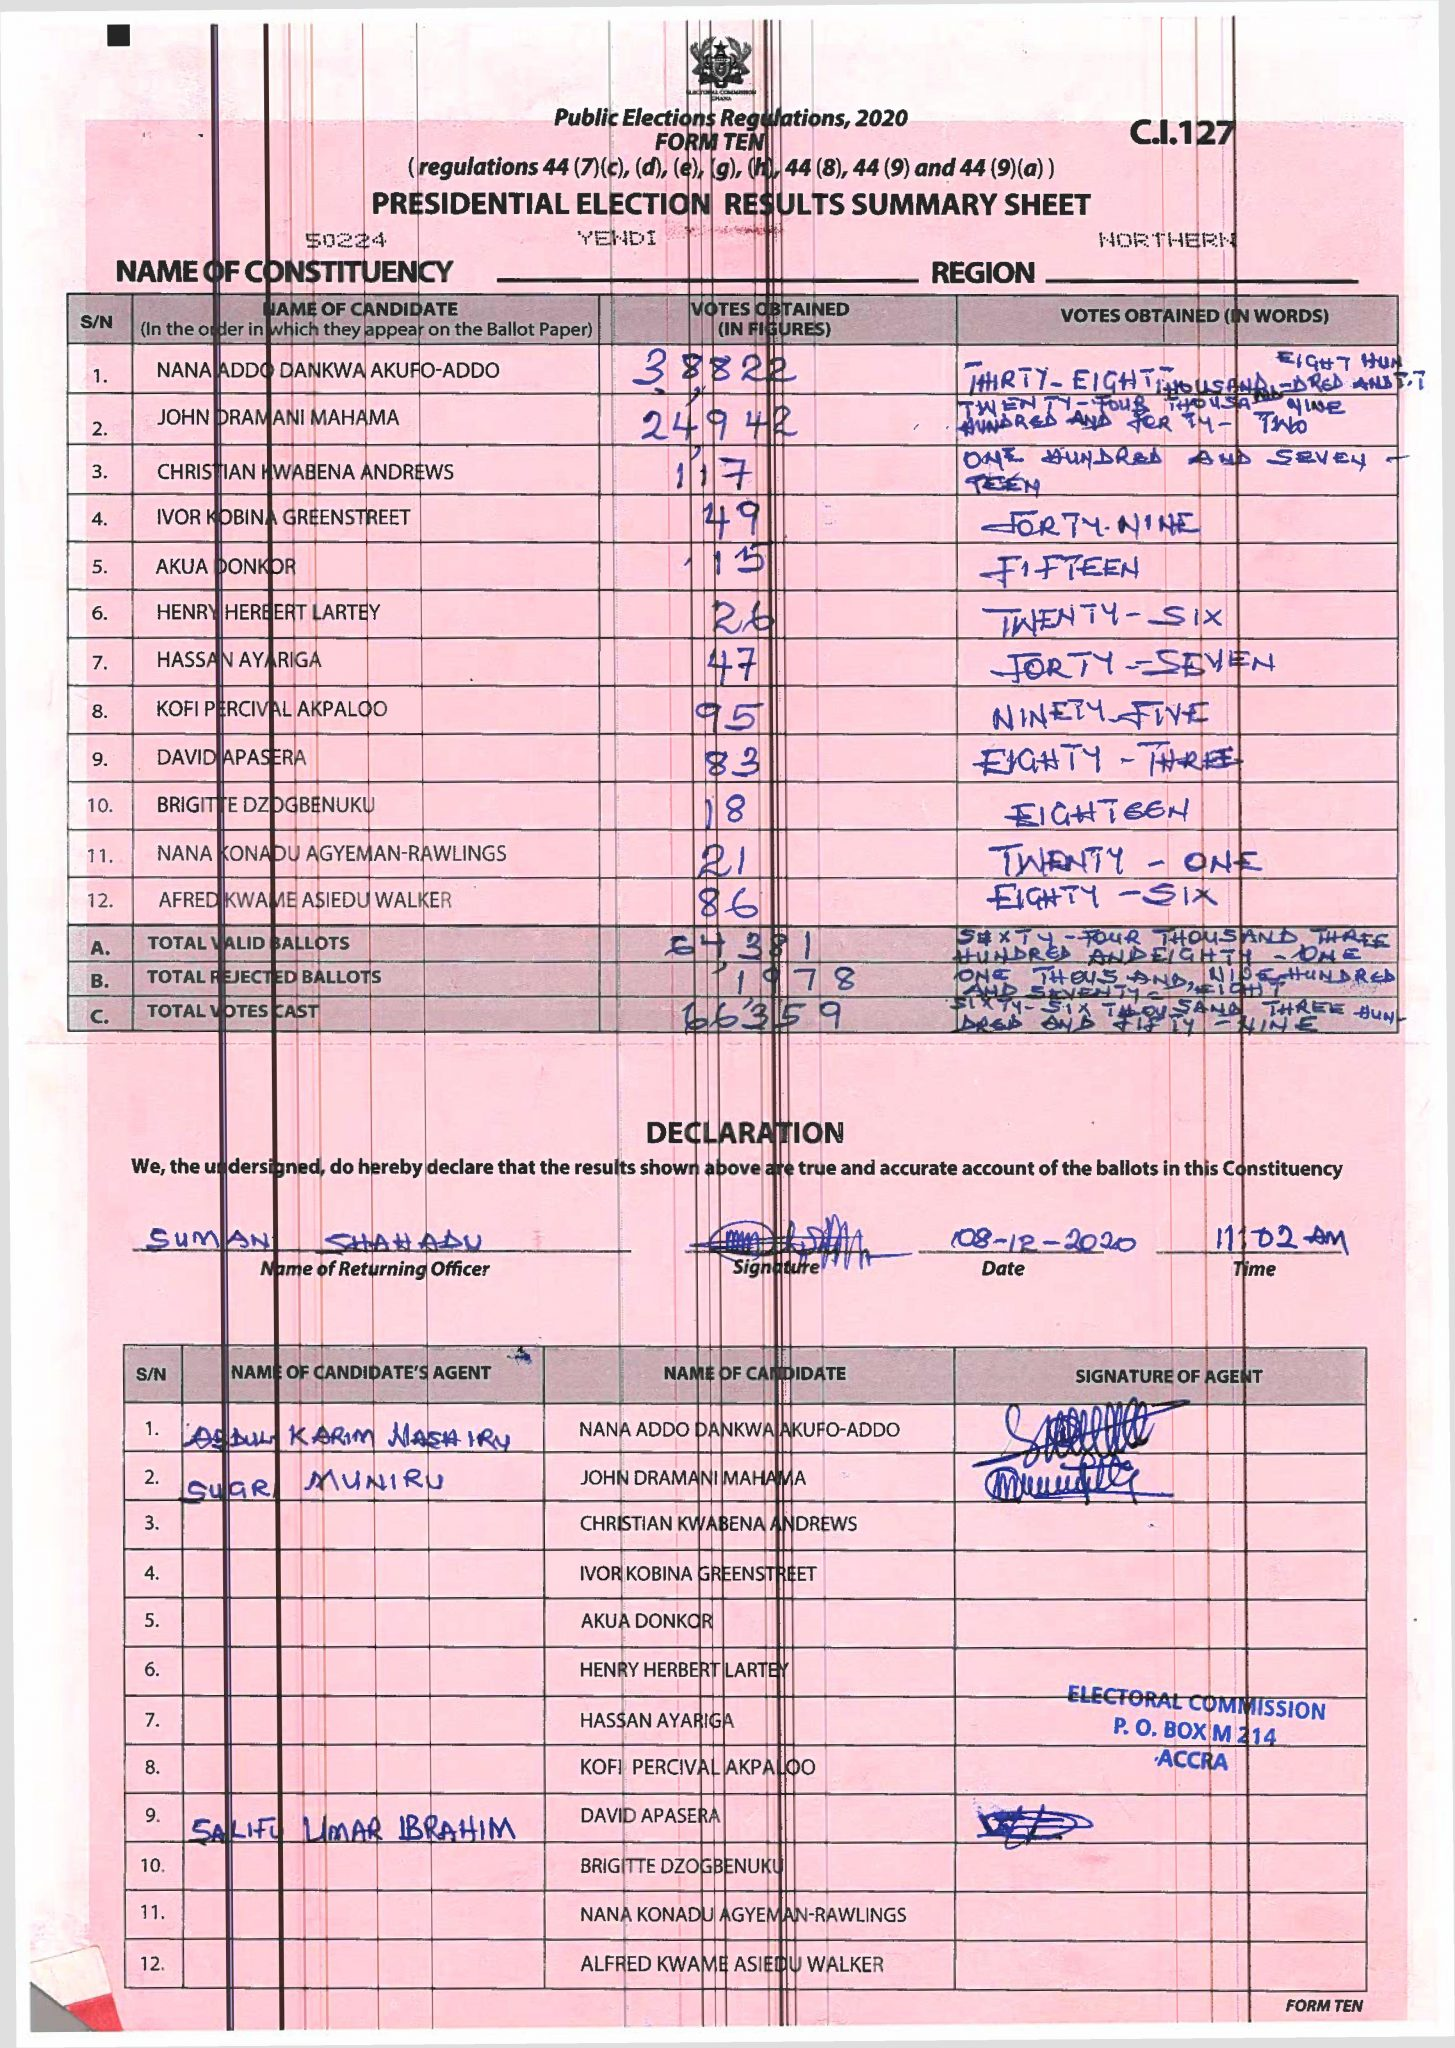 ELECTORAL COMMISSION
GHANA
Public Elections Regulations, 2020
FORM TEN
C.I.127
( regulations 44 (7)(c), (d), (e), (g), (h), 44 (8), 44 (9) and 44 (9)(a) )
PRESIDENTIAL ELECTION RESULTS SUMMARY SHEET
50224 YENDI NORTHERN
NAME OF CONSTITUENCY REGION
S/N NAME OF CANDIDATE (In the order in which they appear on the Ballot Paper) VOTES OBTAINED (IN FIGURES) VOTES OBTAINED (IN WORDS)
1. NANA ADDO DANKWA AKUFO-ADDO 38,822 THIRTY-EIGHT THOUSAND EIGHT HUN-DRED AND
2. JOHN DRAMANI MAHAMA 24,942 TWENTY-FOUR THOUSAND NINE HUNDRED AND FORTY-TWO
3. CHRISTIAN KWABENA ANDREWS 117 ONE HUNDRED AND SEVEN-TEEN
4. IVOR KOBINA GREENSTREET 49 FORTY-NINE
5. AKUA DONKOR 15 FIFTEEN
6. HENRY HERBERT LARTEY 26 TWENTY-SIX
7. HASSAN AYARIGA 47 FORTY-SEVEN
8. KOFI PERCIVAL AKPALOO 95 NINETY-FIVE
9. DAVID APASERA 83 EIGHTY-THREE
10. BRIGITTE DZOGBENUKU 18 EIGHTEEN
11. NANA KONADU AGYEMAN-RAWLINGS 21 TWENTY-ONE
12. AFRED KWAME ASIEDU WALKER 86 EIGHTY-SIX
A. TOTAL VALID BALLOTS 64,381 SIXTY-FOUR THOUSAND THREE HUNDRED AND EIGHTY-ONE
B. TOTAL REJECTED BALLOTS 1978 ONE THOUSAND, NINE HUNDRED AND SEVENTY-EIGHT
C. TOTAL VOTES CAST 66,359 SIXTY-SIX THOUSAND THREE HUN-DRED AND FIFTY-NINE
DECLARATION
We, the undersigned, do hereby declare that the results shown above are true and accurate account of the ballots in this Constituency
SUMAN SHAHADU 08-12-2020 11:02 AM
Name of Returning Officer Signature Date Time
S/N NAME OF CANDIDATE'S AGENT NAME OF CANDIDATE SIGNATURE OF AGENT
1. ABDUL KARIM NASHIRU NANA ADDO DANKWA AKUFO-ADDO
2. SUGRI MUNIRU JOHN DRAMANI MAHAMA
3. CHRISTIAN KWABENA ANDREWS
4. IVOR KOBINA GREENSTREET
5. AKUA DONKOR
6. HENRY HERBERT LARTEY
ELECTORAL COMMISSION
7. HASSAN AYARIGA
P. O. BOX M 214
8. KOFI PERCIVAL AKPALOO
ACCRA
9. SALIFU UMAR IBRAHIM DAVID APASERA
10. BRIGITTE DZOGBENUKU
11. NANA KONADU AGYEMAN-RAWLINGS
12. ALFRED KWAME ASIEDU WALKER
FORM TEN